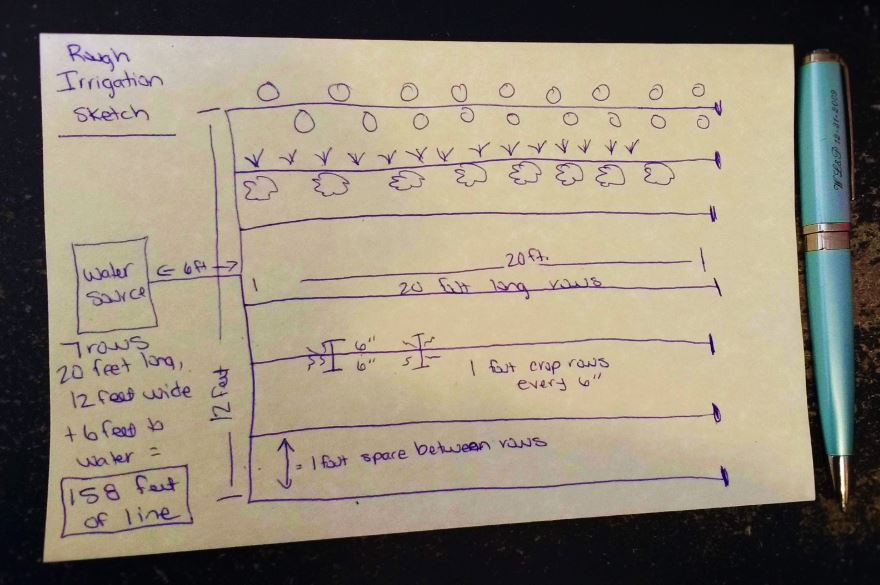 Rough
Irrigation
Sketch
water
source
← 6ft →
20ft.
20 foot long rows
7 rows
20 feet long,
12 feet wide
+ 6 feet to
water =
158 feet
of line
12 feet
6"
6"
1 foot crop rows
every 6"
= 1 foot space between rows